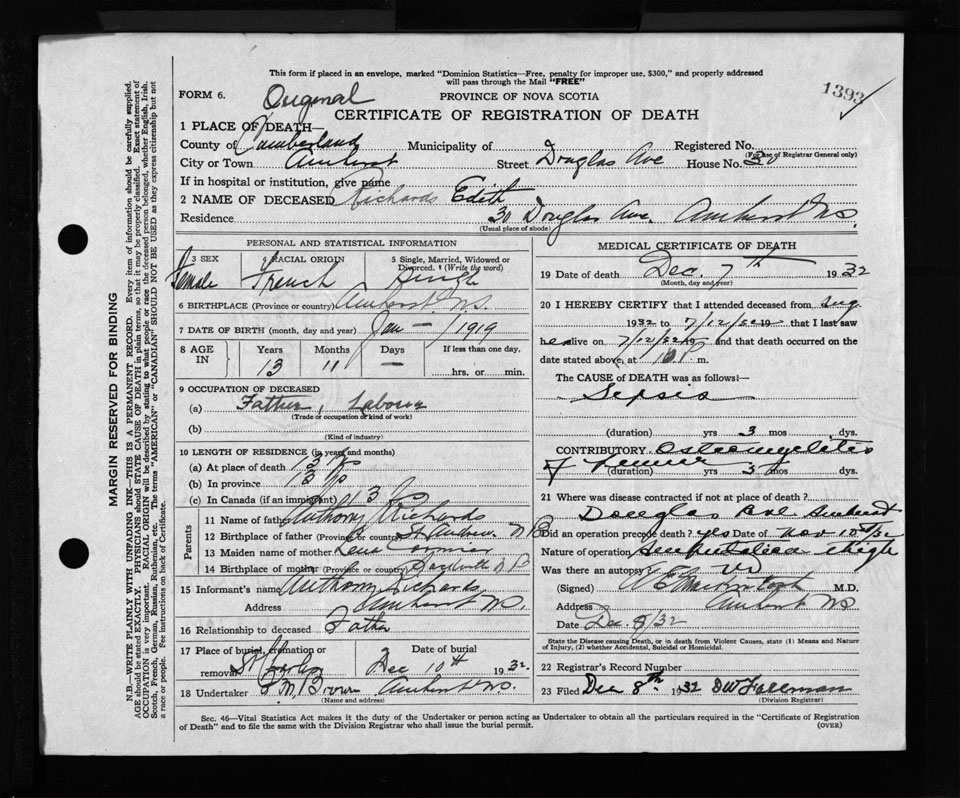 This form if placed in an envelope, marked "Dominion Statistics—Free, penalty for improper use, $300," and properly addressed
will pass through the Mail "FREE"
FORM 6. Original
PROVINCE OF NOVA SCOTIA
1393
CERTIFICATE OF REGISTRATION OF DEATH
1 PLACE OF DEATH—
County of Cumberland Municipality of Registered No.
(For use of Registrar General only)
City or Town Amherst Street Douglas Ave House No. 30
If in hospital or institution, give name
2 NAME OF DECEASED Richards Edith
Residence 30 Douglas Ave. Amherst NS.
(Usual place of abode)
PERSONAL AND STATISTICAL INFORMATION
3 SEX Female
RACIAL ORIGIN French
5 Single, Married, Widowed or Divorced. (Write the word) Single
6 BIRTHPLACE (Province or country) Amherst N.S.
7 DATE OF BIRTH (month, day and year) Jan — 1919
8 AGE IN Years Months Days If less than one day,
13 11 — hrs. or min.
9 OCCUPATION OF DECEASED
(a) Father, Laborer
(Trade or occupation or kind of work)
(b)
(Kind of industry)
10 LENGTH OF RESIDENCE (in years and months)
(a) At place of death 13
(b) In province 13
(c) In Canada (if an immigrant) 13
Parents
11 Name of father Anthony Richards
12 Birthplace of father (Province or country) St Andrew NB
13 Maiden name of mother Lena Cormier
14 Birthplace of mother (Province or country) Sackville NB
15 Informant's name Anthony Richards
Address Amherst NS.
16 Relationship to deceased Father
17 Place of burial, cremation or removal St Charles Date of burial Dec 10th 1932.
18 Undertaker Brown Amherst NS.
(Name and address)
MEDICAL CERTIFICATE OF DEATH
19 Date of death Dec. 7th 1932
(Month, day and year)
20 I HEREBY CERTIFY that I attended deceased from Aug.
1932 to 7/12/32 19 that I last saw
her alive on 7/12/32 19 and that death occurred on the
date stated above, at P. m.
The CAUSE of DEATH was as follows:—
Sepsis
(duration) yrs 3 mos dys.
CONTRIBUTORY Osteomyelitis
of femur
(duration) yrs 3 mos dys.
21 Where was disease contracted if not at place of death?
Douglas Ave Amherst
Did an operation precede death? yes Date of Nov 10th/32
Nature of operation Amputation thigh
Was there an autopsy no
(Signed) M.D.
Address Amherst NS
Date Dec 8/32
State the Disease causing Death, or in death from Violent Causes, state (1) Means and Nature
of Injury, (2) whether Accidental, Suicidal or Homicidal.
22 Registrar's Record Number
23 Filed Dec 8th 1932
(Division Registrar)
Sec. 46—Vital Statistics Act makes it the duty of the Undertaker or person acting as Undertaker to obtain all the particulars required in the "Certificate of Registration
of Death" and to file the same with the Division Registrar who shall issue the burial permit.
(OVER)
MARGIN RESERVED FOR BINDING
N.B.—WRITE PLAINLY WITH UNFADING INK—THIS IS A PERMANENT RECORD. Every item of information should be carefully supplied.
AGE should be stated EXACTLY. PHYSICIANS should STATE CAUSE OF DEATH in plain terms, so that it may be properly classified. Exact statement of
OCCUPATION is very important. RACIAL ORIGIN will be described by stating to what people or race the deceased person belonged, whether English, Irish,
Scotch, French, German, Russian, Ruthenian, etc. The terms "AMERICAN" or "CANADIAN" SHOULD NOT BE USED as they express citizenship but not
a race or people. See instructions on back of Certificate.